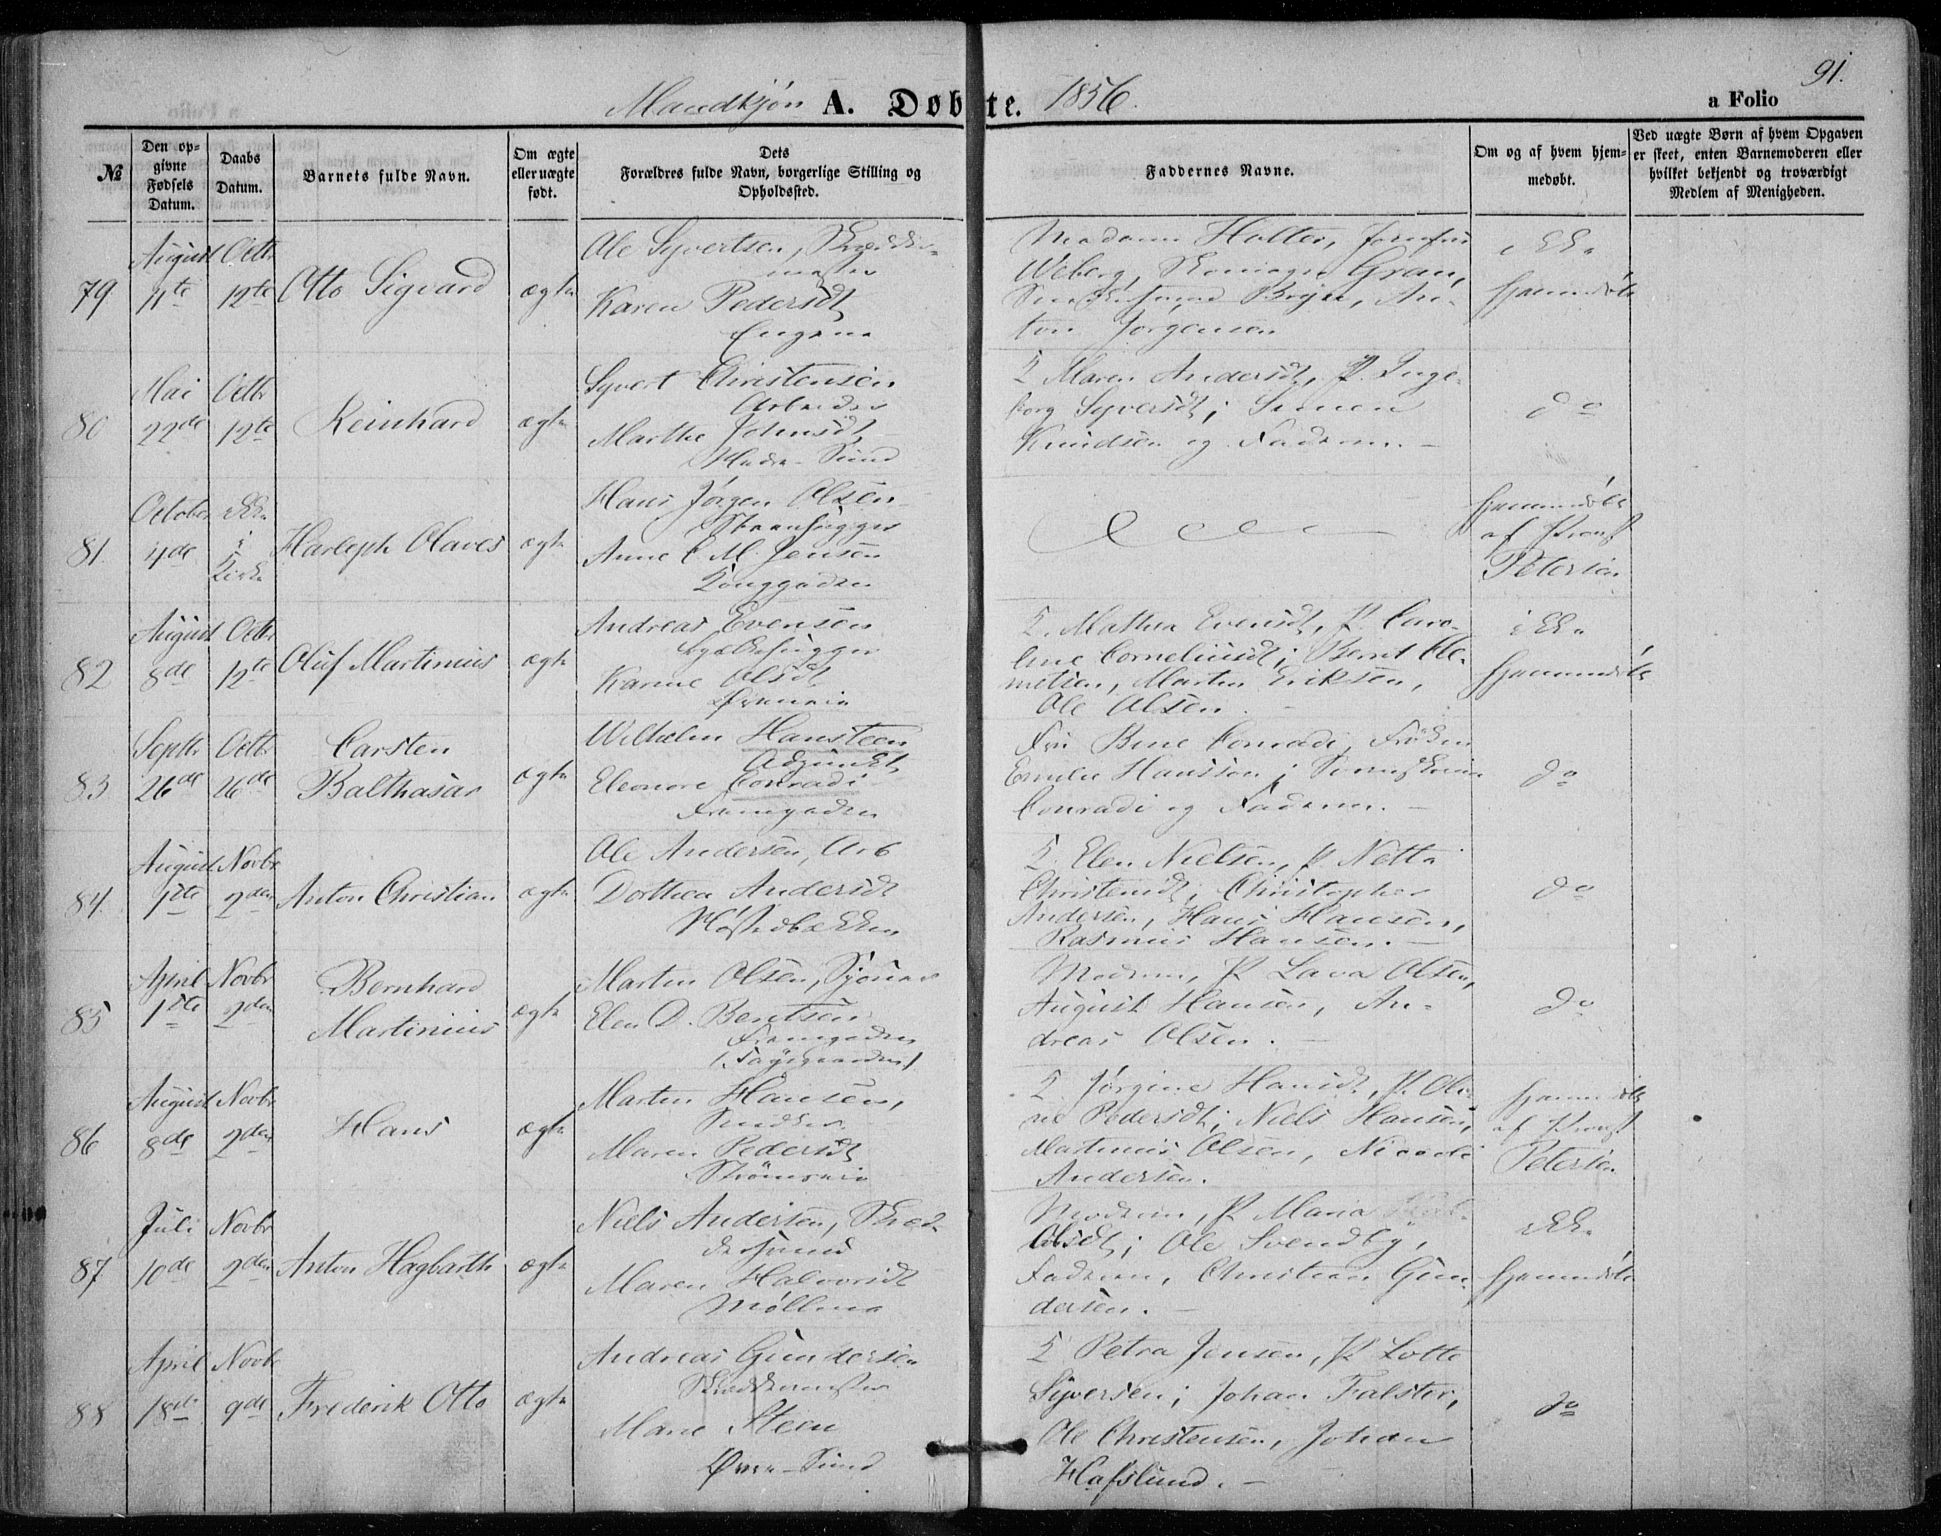 91.
Mandkjøn A. Døbte. 1856. a Folio
№
Den opgivne Fødsels Datum.
Daabs Datum.
Barnets fulde Navn.
Om ægte eller uægte født.
Dets Forældres fulde Navn, borgerlige Stilling og Opholdssted.
Faddernes Navne.
Om og af hvem hjemmedøbt.
Ved uægte Børn af hvem Opgaven er skeet, enten Barnemoderen eller hvilket bekjendt og troværdigt Medlem af Menigheden.
79.
August
11te
Octbr
12te
Otto Sigvard
ægte
Ole Syvertsen, Skrædder-
mester
Karen Pedersdt
Engene
Madame Holter, Jomfru
Weberg, Gran,
An-
ton Jørgensen
ikke
hjemmedøbt
80
Mai
22de
Octbr
12te
Reinhard
ægte
Syvert Christensen
Arbeider
Marthe Johnsdt
Sund
K Maren Andersdt, P. Inge-
borg Syversdt; Simen
Knudsen og Faderen. –
do
81.
October
4de
ikke
i
Kirke
Harleph Olaves
ægte
Hans Jørgen Olsen
Steenhugger
Anne C. M. Jensen
Konggaden
hjemmedøbt
af Provst
Petersen
82
August
8de
Octbr
12te
Oluf Martinius
ægte
Andreas Evensen
Bjælkehugger
Karine Olsdt
Øvreveie
K. Mathea Evensdt, P. Caro-
line Corneliusdt; Bernt Cle-
metsen, Martin Eriksen,
Ole Olsen. –
ikke
hjemmedøbt
83
Septbr
26de
Octbr
26de
Carsten
Balthasar
ægte
Wilhelm Hansteen
Adjunkt
Eleonore Conradi
Fremgaden
Fru Bine Conradi, Frøken
Emilie Hansson;
Conradi og Faderen. –
do
84.
August
1ste
Novbr
2den
Anton Christian
ægte
Ole Andersen, Arb
Dorthea Andersdt
K. Elen Nielsen, P. Netta
Christensdt, Christopher
Andersen, Hans Hansen,
Rasmus Hansen. –
do
85
April
1ste
Novbr
2den
Bernhard
Martinius
ægte
Martin Olsen, Sjømand
Elen D. Bentsen
Fremgaden
Moderen, P. Lava Olsen,
August Hansen, An-
dreas Olsen. –
do
86
August
8de
Novbr
2den
Hans
ægte
Martin Hansen,
Snedker
Maren Pedersdt
Strømsveie
K. Jørgine Hansdt, P. Oli-
ne Pedersdt; Niels Hansen,
Martinius Olsen, Nicolai
Andersen.
hjemmedøbt
af Provst
Petersen
87
Juli
10de
Novbr
2den
Anton Hagbarth
ægte
Niels Andersen, Skræd-
dersvend
Maren Halvorsdt
Møllene
Moderen, P. Maria
Olsdt; Ole Svendby,
Faderen, Christian Gun-
dersen. –
ikke
hjemmedøbt
88
April
18de
Novbr
9de
Frederik Otto
ægte
Andreas Gundersen
Skreddermester
Marie Steen
Øvre-Sund
K Petra Jensen, P. Lotte
Syversen; Johan Falster,
Ole Christensen, Johan
Hafslund. –
do